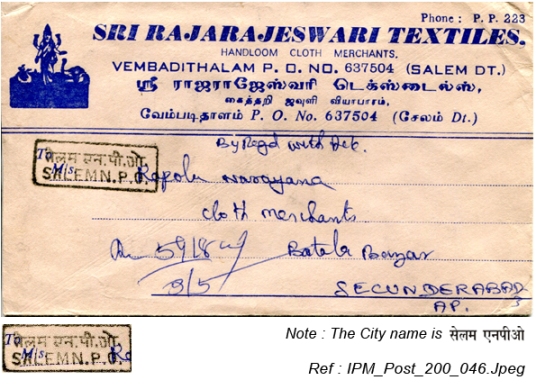 Phone : P. P. 223
SRI RAJARAJESWARI TEXTILES.
HANDLOOM CLOTH MERCHANTS,
VEMBADITHALAM P. O. NO. 637504 (SALEM DT.)
ஸ்ரீ ராஜராஜேஸ்வரி டெக்ஸ்டைல்ஸ்,
கைத்தறி ஜவுளி வியாபாரம்,
வேம்படிதாளம் P. O. No. 637504 (சேலம் Dt.)
By Regd with
To
सेलम एन.पी.ओ.
M/s
SALEM N.P.O.
Rapolu Narayana
Cloth merchants
59/8
Bazar
3/5
SECUNDERABAD
AP.
To
सेलम एन.पी.ओ.
M/s
SALEM N.P.O.
Note : The City name is सेलम एनपीओ
Ref : IPM_Post_200_046.Jpeg